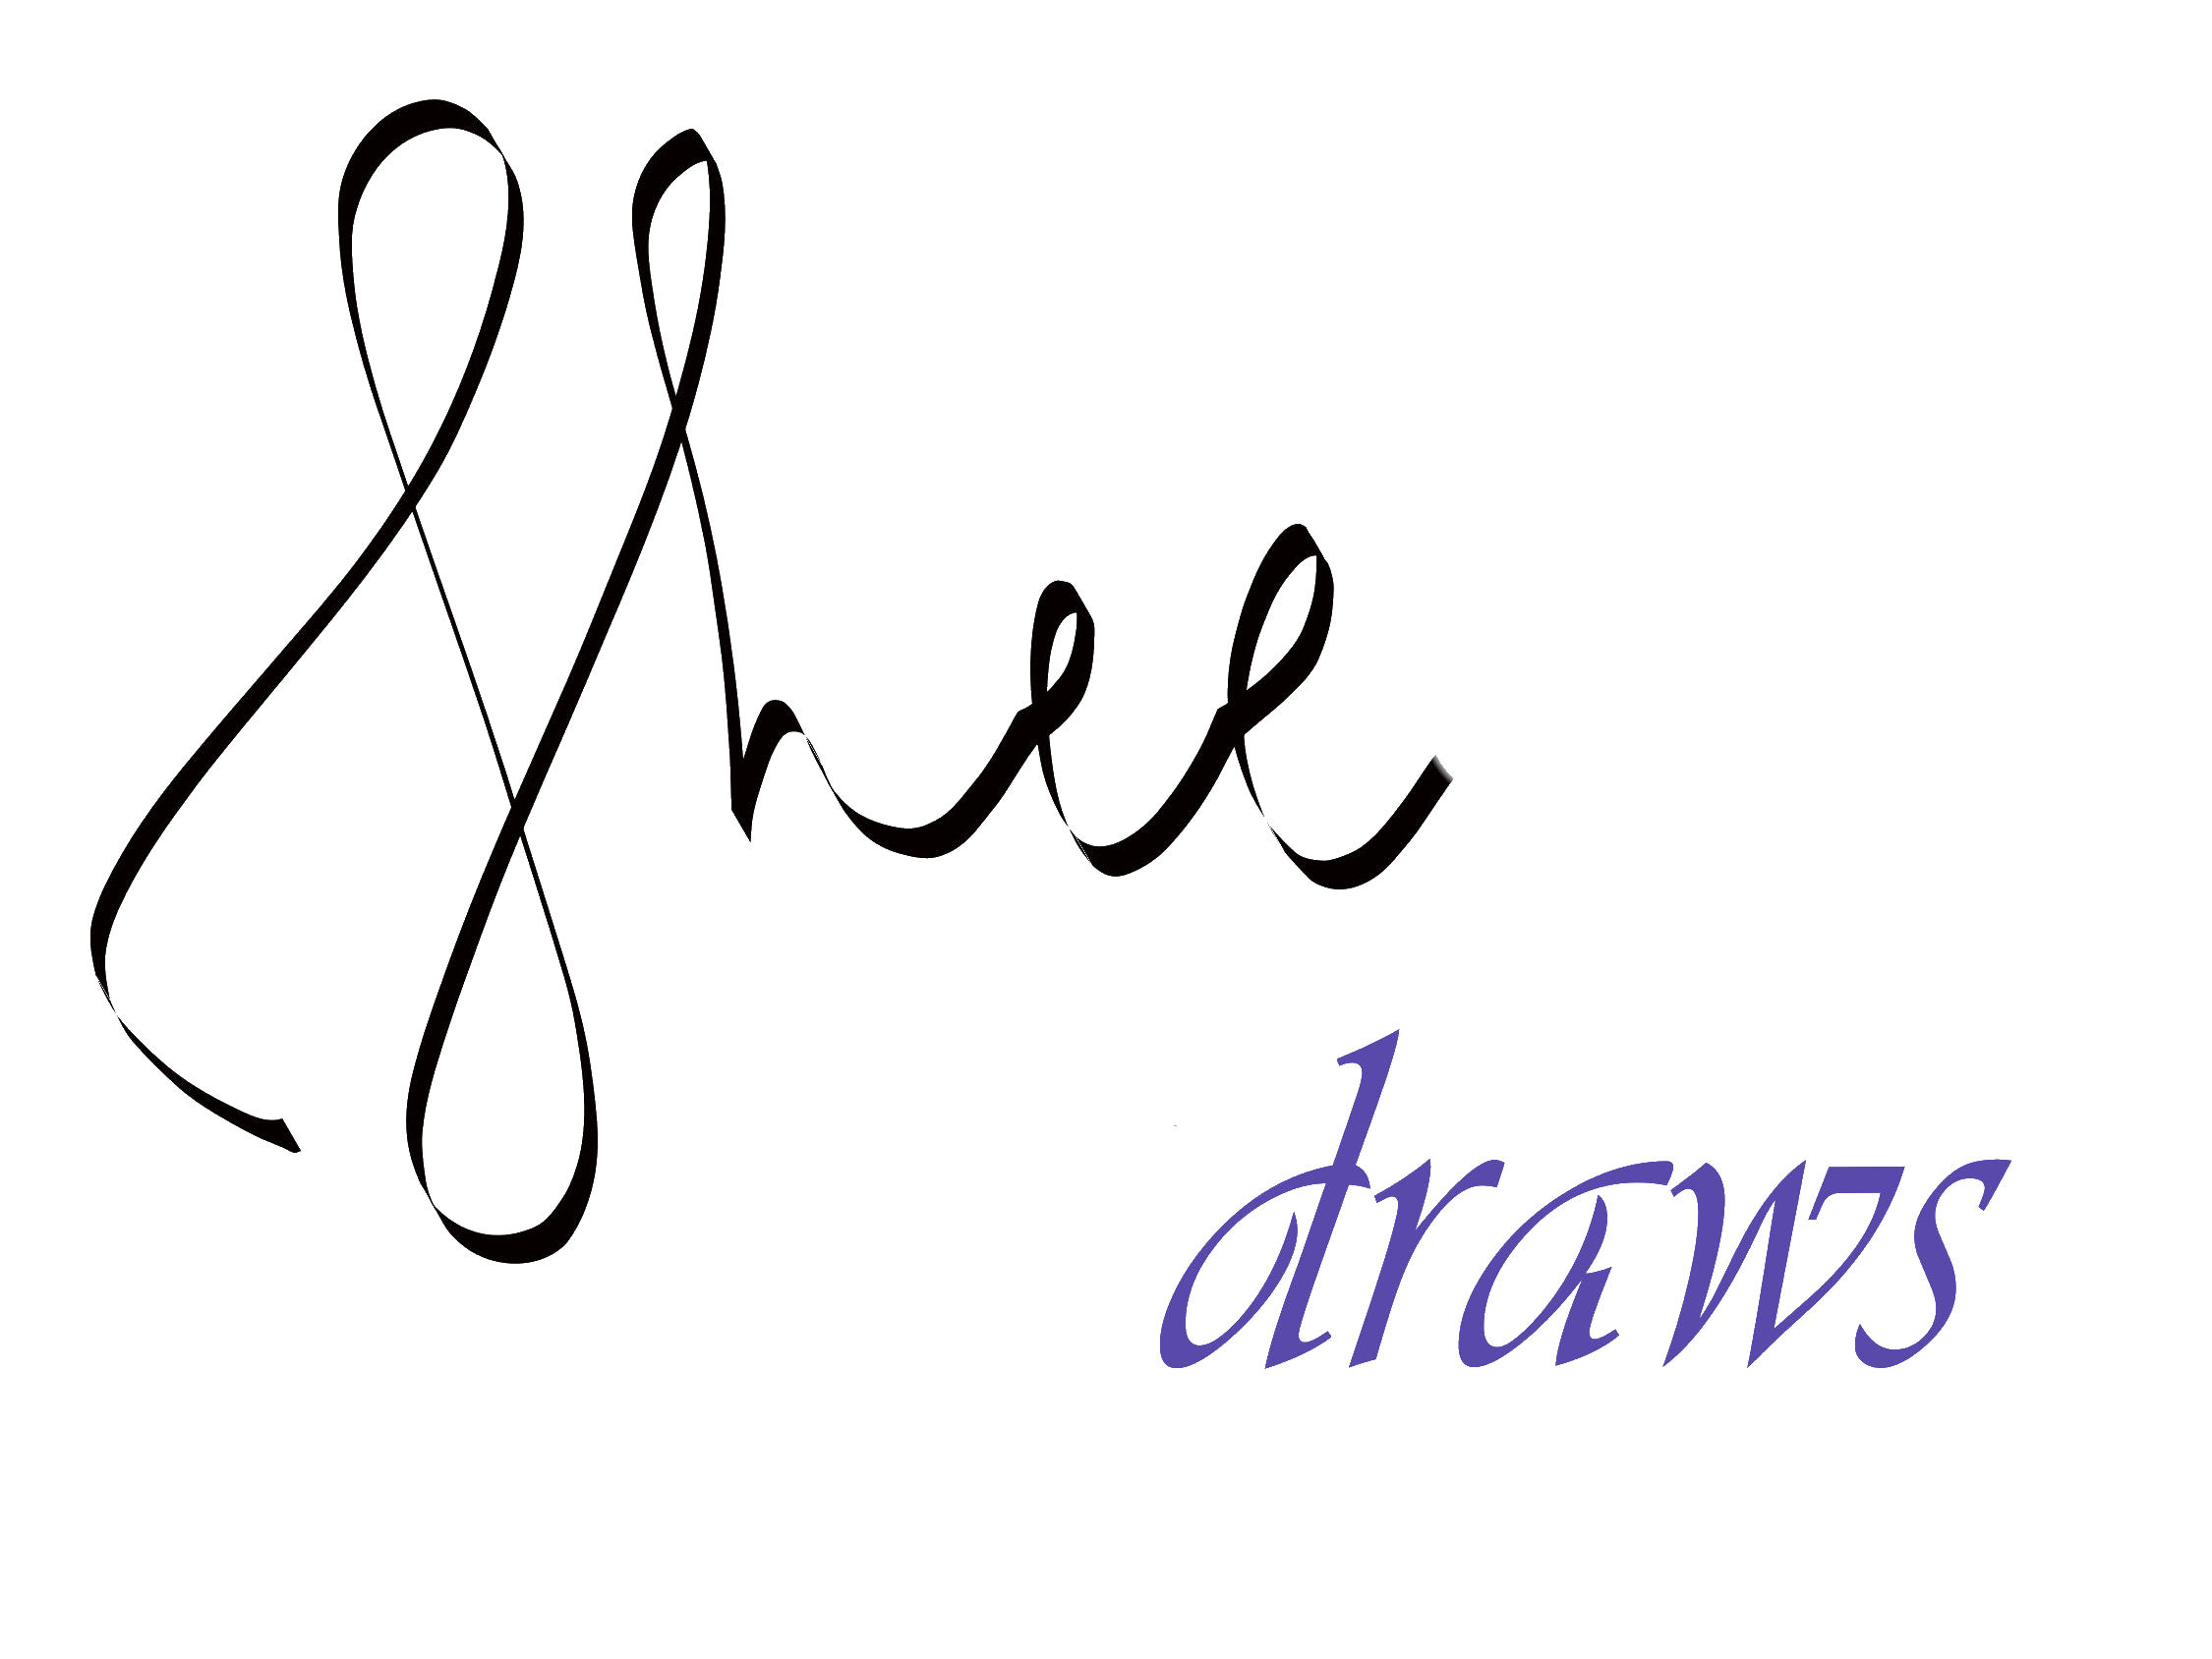 Shee
draws